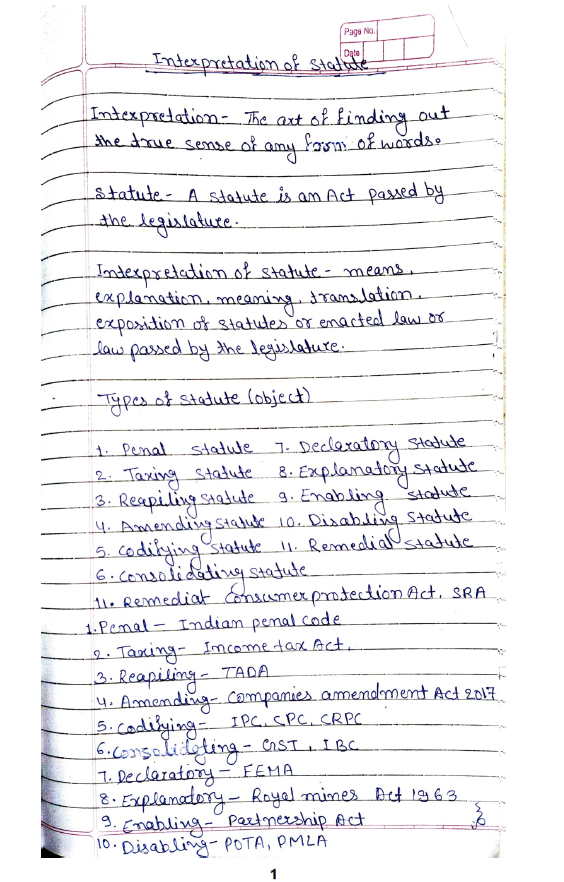 Page No.
Date
Interpretation of Statute
Interpretation - The art of finding out
the true sense of any form of words.
Statute - A statute is an Act passed by
the legislature.
Interpretation of statute - means,
explanation, meaning, translation,
exposition of statutes or enacted law or
law passed by the legislature.
Types of statute (object)
1. Penal statute 7. Declaratory statute
2. Taxing statute 8. Explanatory statute
3. Reapiling statute 9. Enabling statute
4. Amending statute 10. Disabling statute
5. Codifying statute 11. Remedial statute
6. Consolidating statute
11. Remedial Consumer protection Act, SRA
1. Penal - Indian penal code
2. Taxing - Income tax Act,
3. Reapiling - TADA
4. Amending - Companies amendment Act 2017
5. Codifying - IPC, CPC, CRPC
6. Consolidating - GST, IBC
7. Declaratory - FEMA
8. Explanatory - Royal mines Act 1963
9. Enabling - Partnership Act
10. Disabling - POTA, PMLA
1